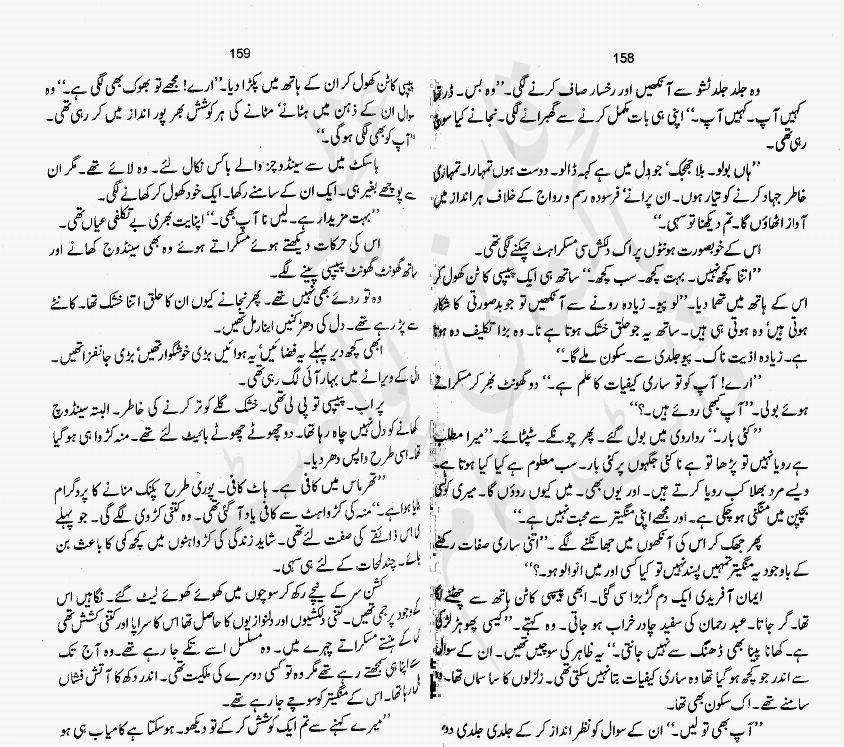 158
وہ جلد جلد ٹشو سے آنکھیں اور رخسار صاف کرنے لگی۔ ’’وہ بس۔ ڈرتی
کہیں آپ۔ کہیں آپ۔‘‘ اپنی ہی بات مکمل کرنے سے گھبرانے لگی۔ نجانے کیا سوچ
رہی تھی۔
’’ہاں بولو۔ بلا جھجک‘ جو دل میں ہے کہہ ڈالو۔ دوست ہوں تمہارا۔ تمہاری
خاطر جہاد کرنے کو تیار ہوں۔ ان پرانے‘ فرسودہ رسم و رواج کے خلاف ہر انداز میں
آواز اٹھاؤں گا۔ تم دیکھنا تو سہی۔‘‘
اس کے خوبصورت ہونٹوں پر اک دلکش سی مسکراہٹ چمکنے لگی تھی۔
’’اتنا کچھ نہیں۔ بہت کچھ۔ سب کچھ۔‘‘ ساتھ ہی ایک پیپسی کا ٹن کھول کر
اس کے ہاتھ میں تھما دیا۔ ’’لو پیو۔ زیادہ رونے سے آنکھیں تو جو بدصورتی کا شکار
ہوتی ہیں‘ وہ ہوتی ہی ہیں۔ ساتھ یہ جو حلق خشک ہوتا ہے نا۔ وہ بڑا تکلیف دہ ہوتا
ہے۔ زیادہ اذیت ناک۔ پیو جلدی سے۔ سکون ملے گا۔‘‘
’’ارے! آپ کو تو ساری کیفیات کا علم ہے۔‘‘ دو گھونٹ بھر کر مسکراتے
ہوئے بولی۔ ’’آپ کبھی روئے ہیں۔؟‘‘
’’کئی بار۔‘‘ رواروی میں بول گئے۔ پھر چونکے۔ سٹپٹائے۔ ’’میرا مطلب
ہے رویا نہیں تو پڑھا تو ہے نا کئی جگہوں پر کئی بار۔ سب معلوم ہے کیا کیا ہوتا ہے۔
ویسے مرد بھلا کب رویا کرتے ہیں۔ اور یوں بھی۔ میں کیوں روؤں گا۔ میری کوئی
بچپن میں منگنی ہو چکی ہے۔ اور مجھے اپنی منگیتر سے محبت نہیں ہے۔‘‘
پھر جھک کر اس کی آنکھوں میں جھانکنے لگے۔ ’’اتنی ساری صفات رکھنے
کے باوجود یہ منگیتر تمہیں پسند نہیں تو کیا کسی اور میں انوالو ہو۔؟‘‘
ایمان آفریدی ایک دم گڑبڑا سی گئی۔ ابھی پیپسی کا ٹن ہاتھ سے چھٹنے لگا
تھا۔ گر جاتا۔ عبدرحمان کی سفید چادر خراب ہو جاتی۔ وہ کہتے۔ ’’کیسی پھوہڑ لڑکی
ہے۔ کھانا پینا بھی ڈھنگ سے نہیں جانتی۔‘‘ یہ ظاہر کی سوچیں تھیں۔ ان کے سوال
سے اندر جو کچھ ہو گیا تھا وہ ساری کیفیات بتا نہیں سکتی تھی۔ زلزلوں کا سا سماں تھا۔
سامنے تھے۔ اک سکون بھی تھا۔
’’آپ بھی تو لیں۔‘‘ ان کے سوال کو نظر انداز کر کے جلدی جلدی دو
159
پیپسی کا ٹن کھول کر ان کے ہاتھ میں پکڑا دیا۔ ’’ارے! مجھے تو بھوک بھی لگی ہے۔‘‘ وہ
سوال ان کے ذہن میں ہٹانے‘ مٹانے کی ہر کوشش بھر پور انداز میں کر رہی تھی۔
’’آپ کو بھی لگی ہو گی۔‘‘
باسکٹ میں سے سینڈوچز والے باکس نکال لئے۔ وہ لائے تھے۔ مگر ان
سے پوچھے بغیر ہی۔ ایک ان کے سامنے رکھا۔ ایک خود کھول کر کھانے لگی۔
’’بہت مزیدار ہے۔ لیں نا آپ بھی۔‘‘ اپنایت بھری بے تکلفی عیاں تھی۔
اس کی حرکات دیکھتے ہوئے مسکراتے ہوئے وہ بھی سینڈوچ کھانے اور
ساتھ گھونٹ گھونٹ پیپسی پینے لگے۔
وہ تو روئے بھی نہیں تھے۔ پھر نجانے کیوں ان کا حلق اتنا خشک تھا۔ کانٹے
سے پڑ رہے تھے۔ دل کی دھڑکنیں ابنارمل تھیں۔
ابھی کچھ دیر پہلے یہ فضائیں‘ یہ ہوائیں بڑی خوشگوار تھیں‘ بڑی جانفزا تھیں۔
کے ویرانے میں بہار آئی لگ رہی تھی۔
پر اب۔ پیپسی تو پی لی تھی۔ خشک گلے کو تر کرنے کی خاطر۔ البتہ سینڈوچ
کھانے کو دل نہیں چاہ رہا تھا۔ دو چھوٹے چھوٹے بائیٹ لئے تھے۔ منہ کڑوا ہی ہو گیا
تھا۔ اسی طرح واپس دھر دیا۔
’’تھرماس میں کافی ہے۔ ہاٹ کافی۔ پوری طرح پکنک منانے کا پروگرام
بنایا ہوا ہے۔‘‘ منہ کی کڑواہٹ سے کافی یاد آ گئی تھی۔ وہ کتنی کڑوی لگے گی۔ جو پہلے
اس ذائقے کی صفت لئے تھی۔ شاید زندگی کی کڑواہٹوں میں کچھ کمی کا باعث بن
جائے۔ چند لمحات کے لئے ہی سہی۔
کشن سر کے نیچے رکھ کر سوچوں میں کھوئے کھوئے لیٹ گئے۔ نگاہیں اس
کے وجود پر جمی تھیں۔ کتنی دلکشیوں اور دلنوازیوں کا حاصل تھا اس کا سراپا اور کتنی کشش تھی
کے ہنستے مسکراتے چہرے میں۔ وہ مسلسل اسے تکے جا رہے تھے۔ وہ آج تک
اپنا ہی سمجھتے رہے تھے مگر وہ تو کسی دوسرے کی ملکیت تھی۔ اندر دکھ کا آتش فشاں
رہا تھا۔ اس کے منگیتر کو سوچے جا رہے تھے۔
’’میرے کہنے سے تم ایک کوشش کر کے تو دیکھو۔ ہو سکتا ہے کامیاب ہی ہو